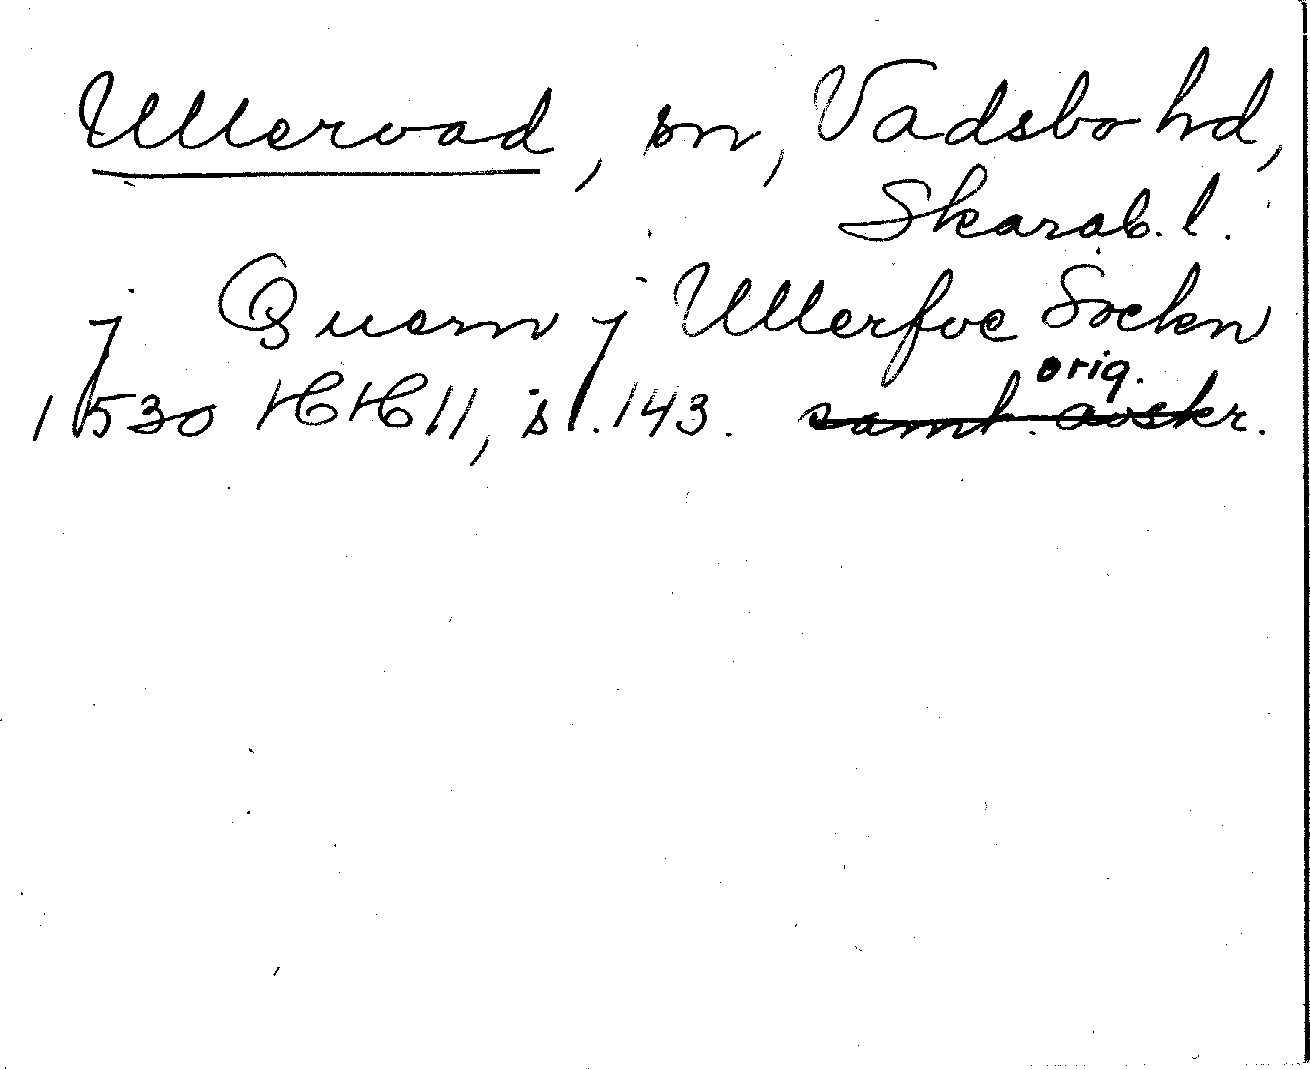 Ullervad, sn, Vadsbo hd,
Skarab. l.
j Quern j Ullerfue Sockn
orig.
1530 HH 11, s. 143. samt. avskr.